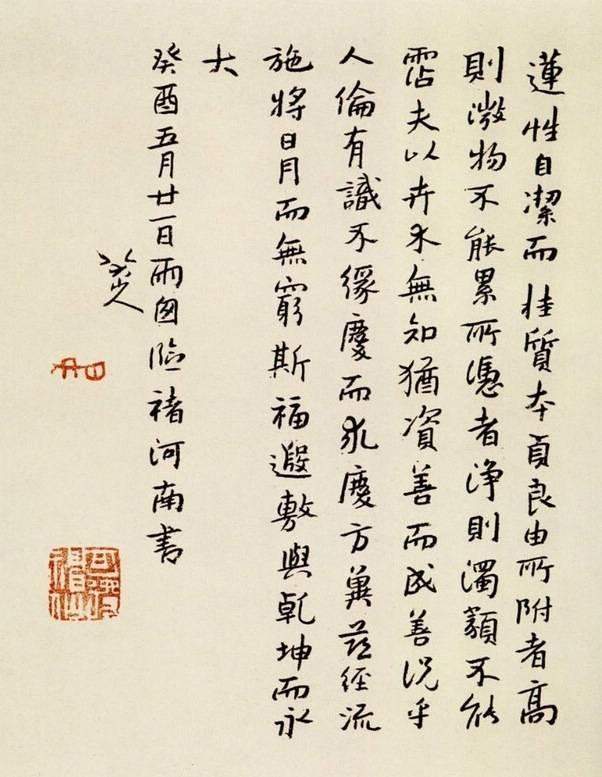 蓮性自潔而桂質本貞良由所附者高
則微物不能累所憑者浄則濁類不能
霑夫以卉木無知猶資善而成善況乎
人倫有識不緣慶而求慶方冀茲經流
施將日月而無窮斯福遐敷與乾坤而永
大
癸酉五月廿一日雨囱臨褚河南書
八大山人
可得神仙